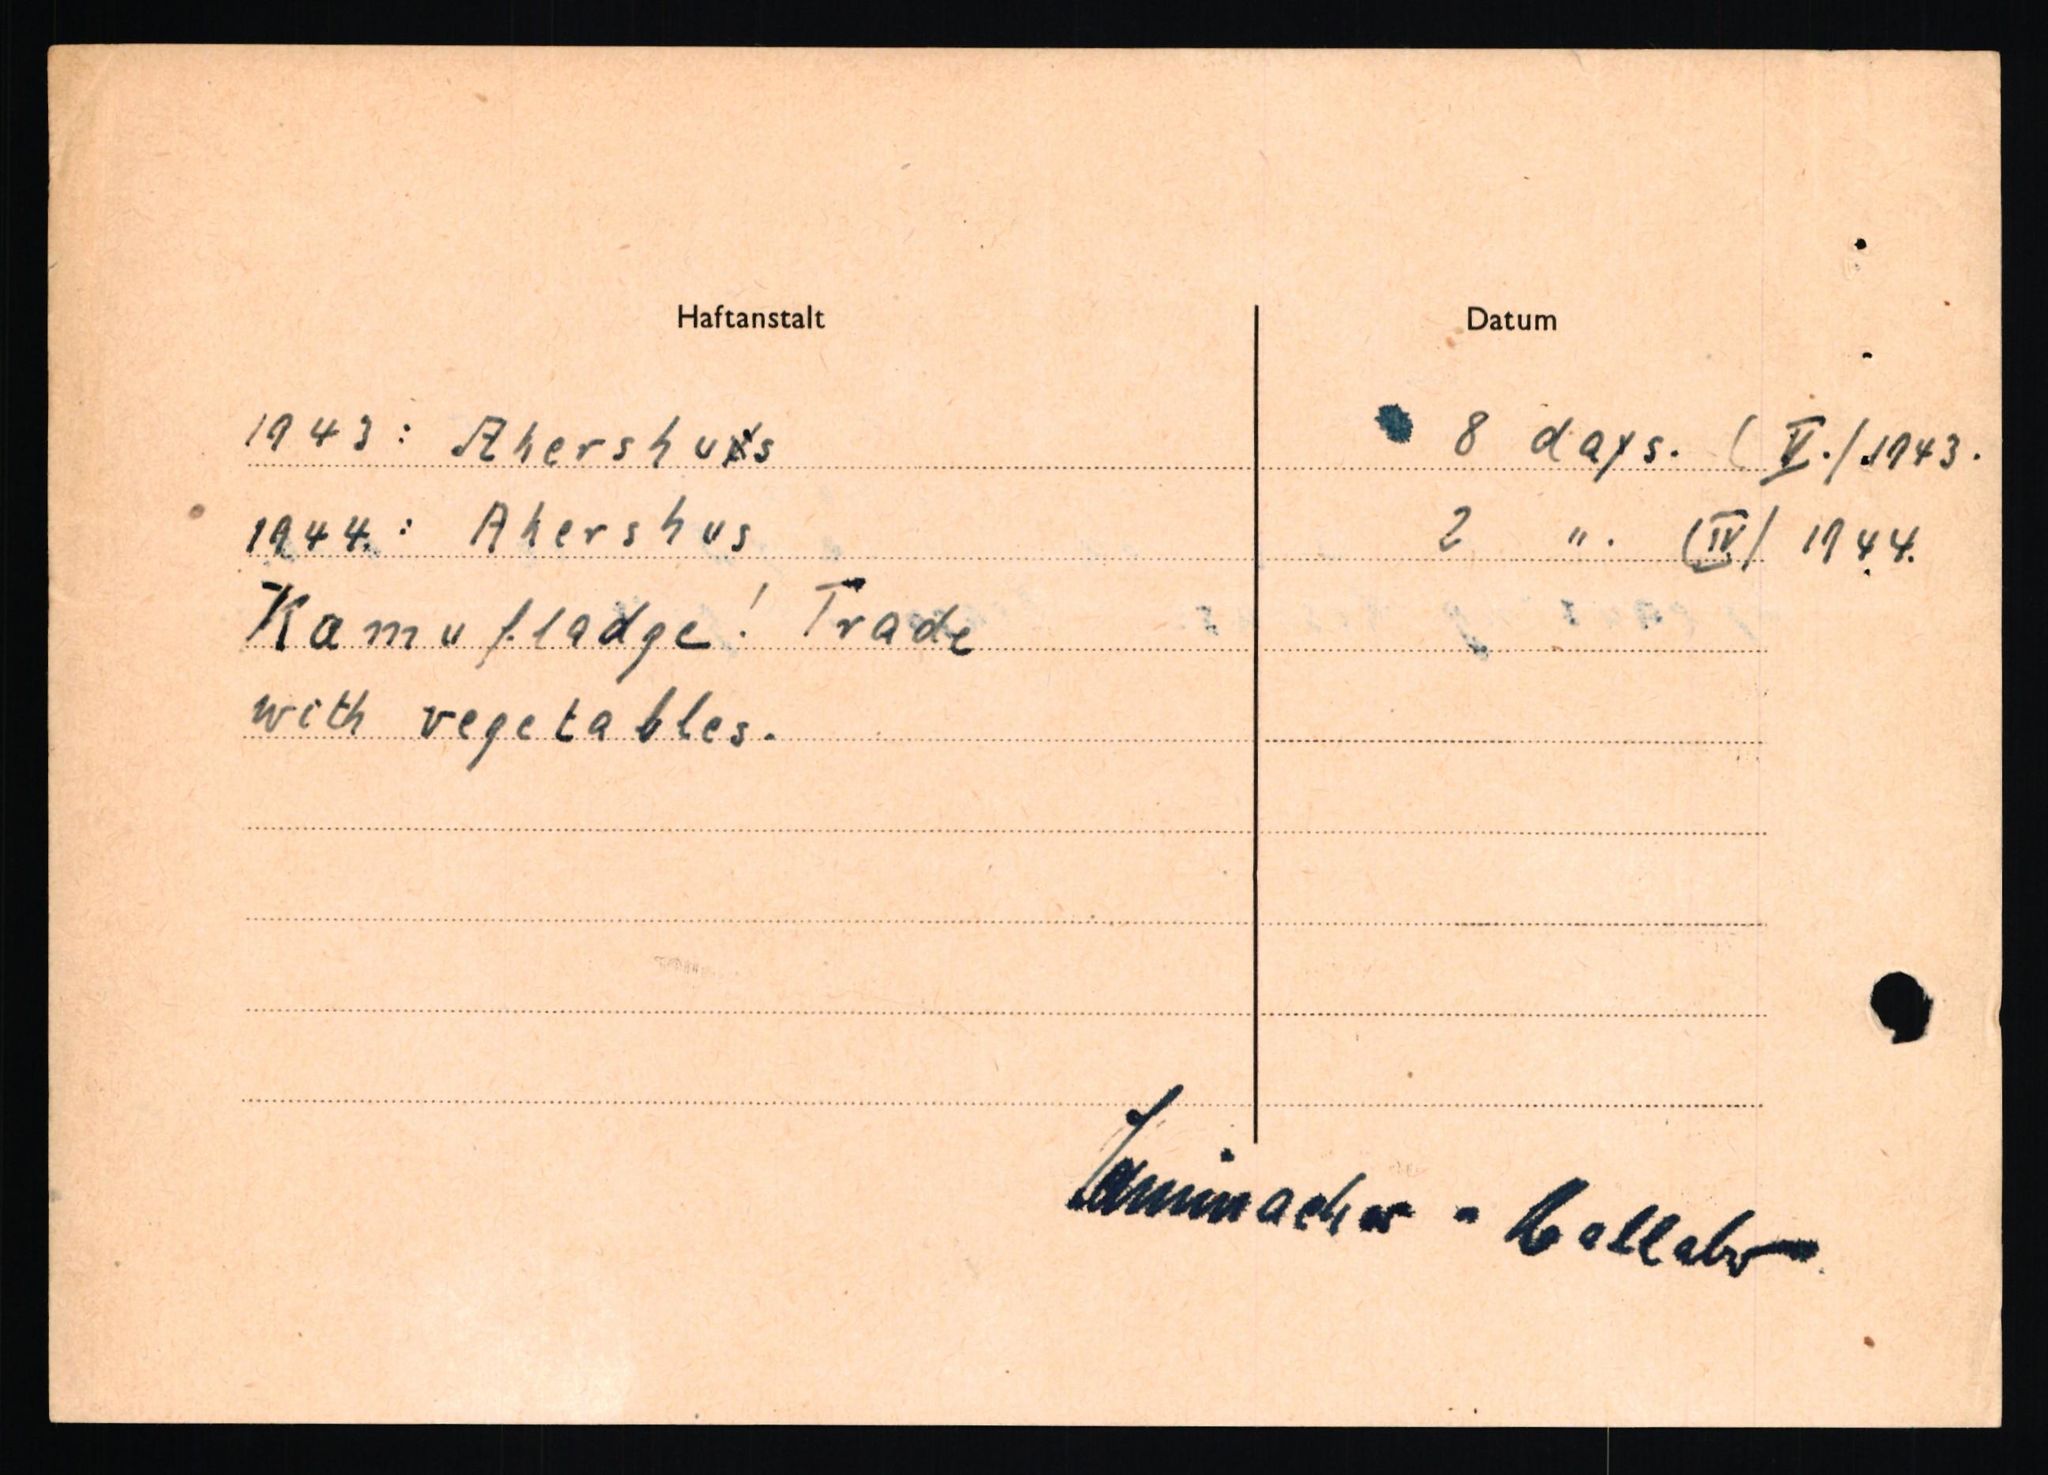 Haftanstalt Datum
1943: Akershus 8 days. (V./1943.
1944.: Akershus 2 ". (IV/ 1944.
Kamufladge! Trade
with vegetables.